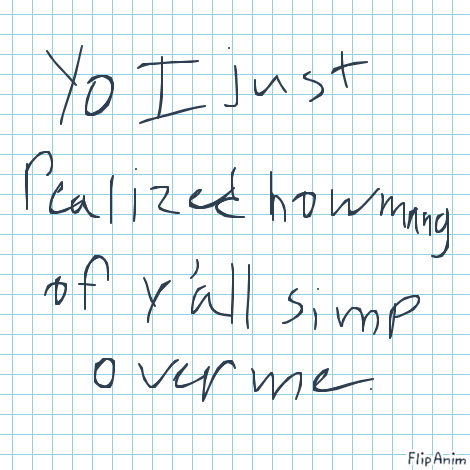 Yo I just
realized how many
of y'all simp
over me.
FlipAnim